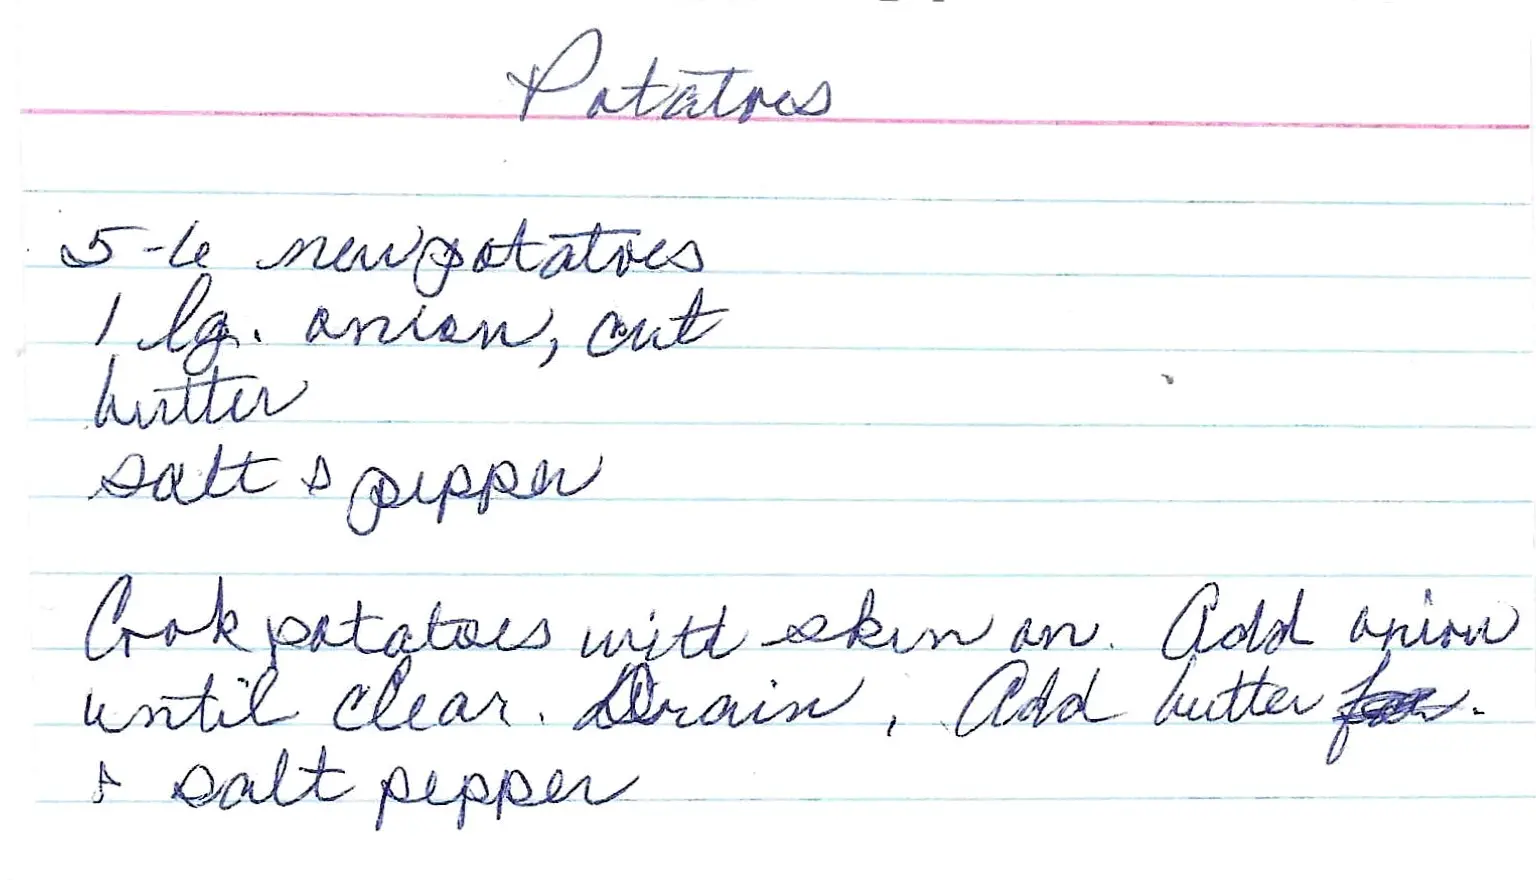 Potatoes
5-6 new potatoes
1 lg. onion, cut
butter
salt & pepper
Cook potatoes with skin on. Add onion
until clear. Drain, Add butter .
& salt pepper